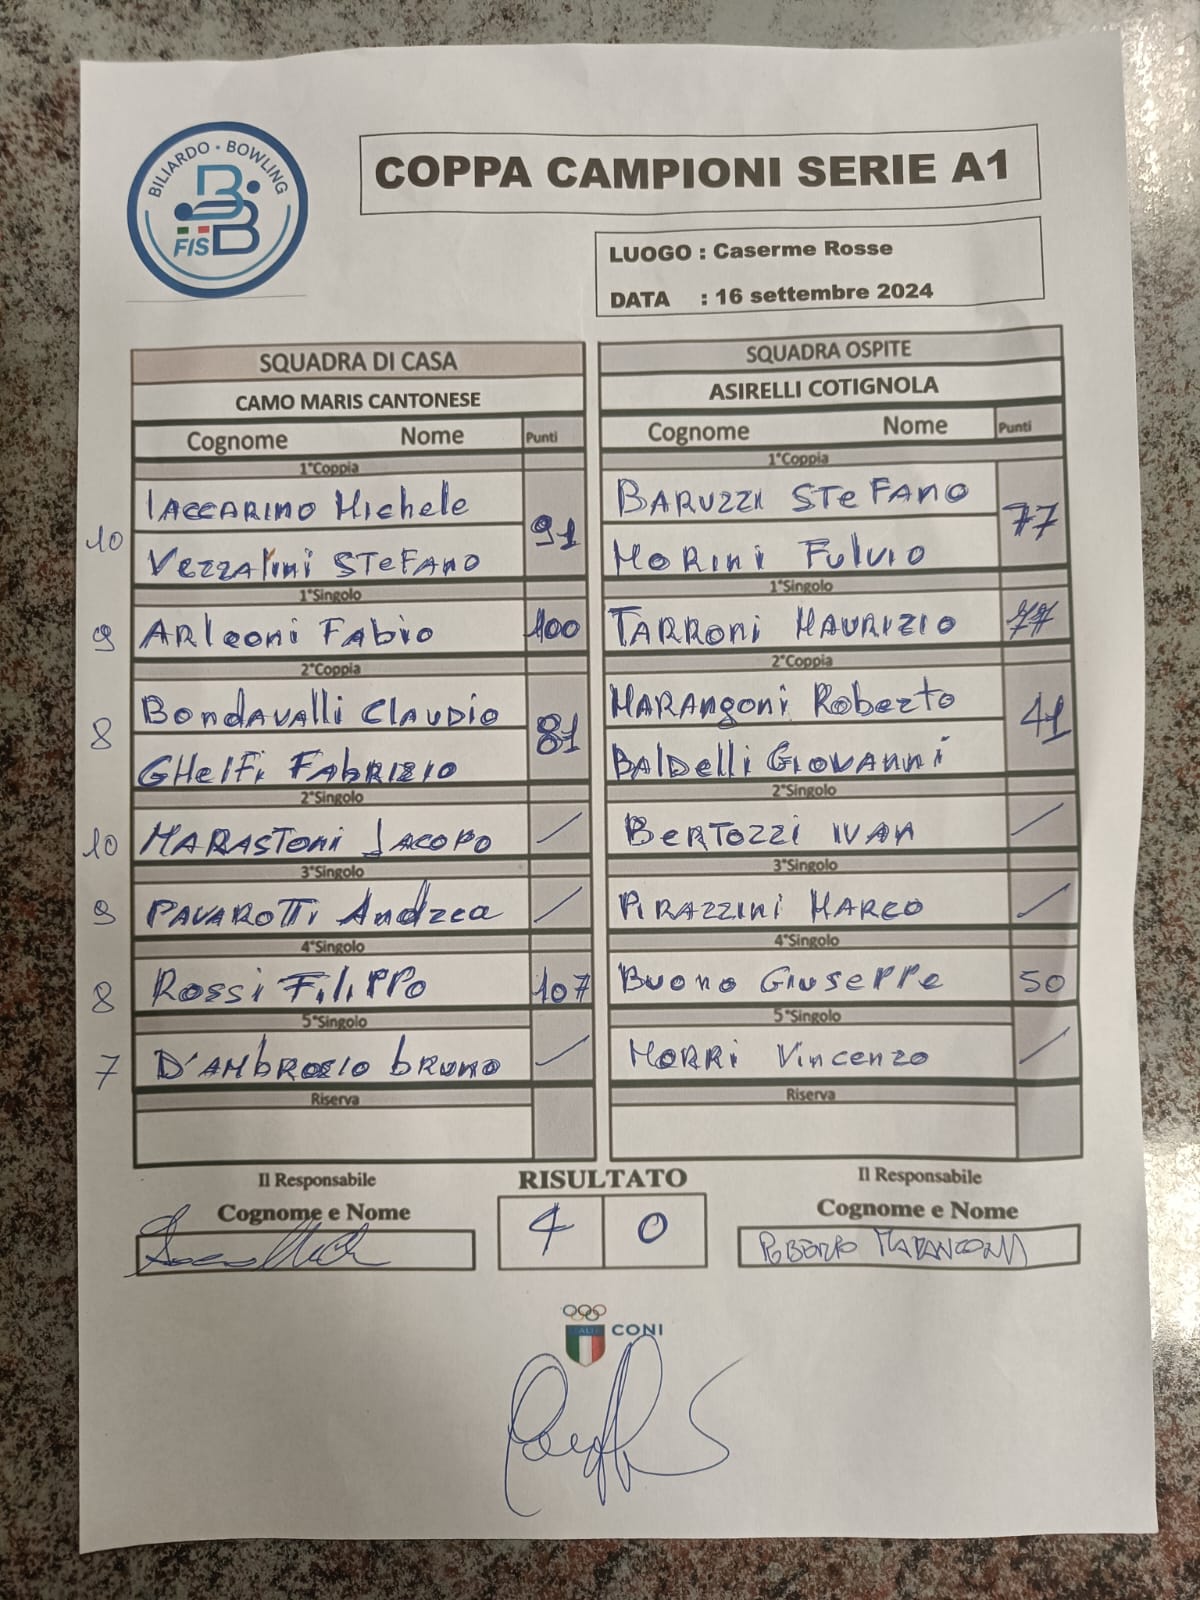 BILIARDO • BOWLING
FISBB
COPPA CAMPIONI SERIE A1
LUOGO : Caserme Rosse
DATA : 16 settembre 2024
SQUADRA DI CASA
CAMO MARIS CANTONESE
Cognome Nome Punti
1°Coppia
10 IACCARINO Michele 91
VEZZAlini STEFANO
1°Singolo
9 ARleoni FABIO 100
2°Coppia
8 BondAVAlli CLAUDIO 81
GHElFi FABRIZIO
2°Singolo
10 MARASToni JACOPO /
3°Singolo
9 PAVAROTTi Andrea /
4°Singolo
8 Rossi FiliPPo 107
5°Singolo
7 D'AMbROSIO bRUNO /
Riserva
SQUADRA OSPITE
ASIRELLI COTIGNOLA
Cognome Nome Punti
1°Coppia
BARUZZI STeFANO 77
MORini FulVIO
1°Singolo
TARRONi MAURIZIO
2°Coppia
MARANgoni Roberto 41
BALDelli GIOVANNi
2°Singolo
BERTOZZI IVAN /
3°Singolo
PIRAZZINI MARCO /
4°Singolo
BUONO GIUSEPPE 50
5°Singolo
MORRi VinCENZO /
Riserva
Il Responsabile
Cognome e Nome
RISULTATO
4 0
Il Responsabile
Cognome e Nome
ROBERTO MARANGONI
ITALIA CONI